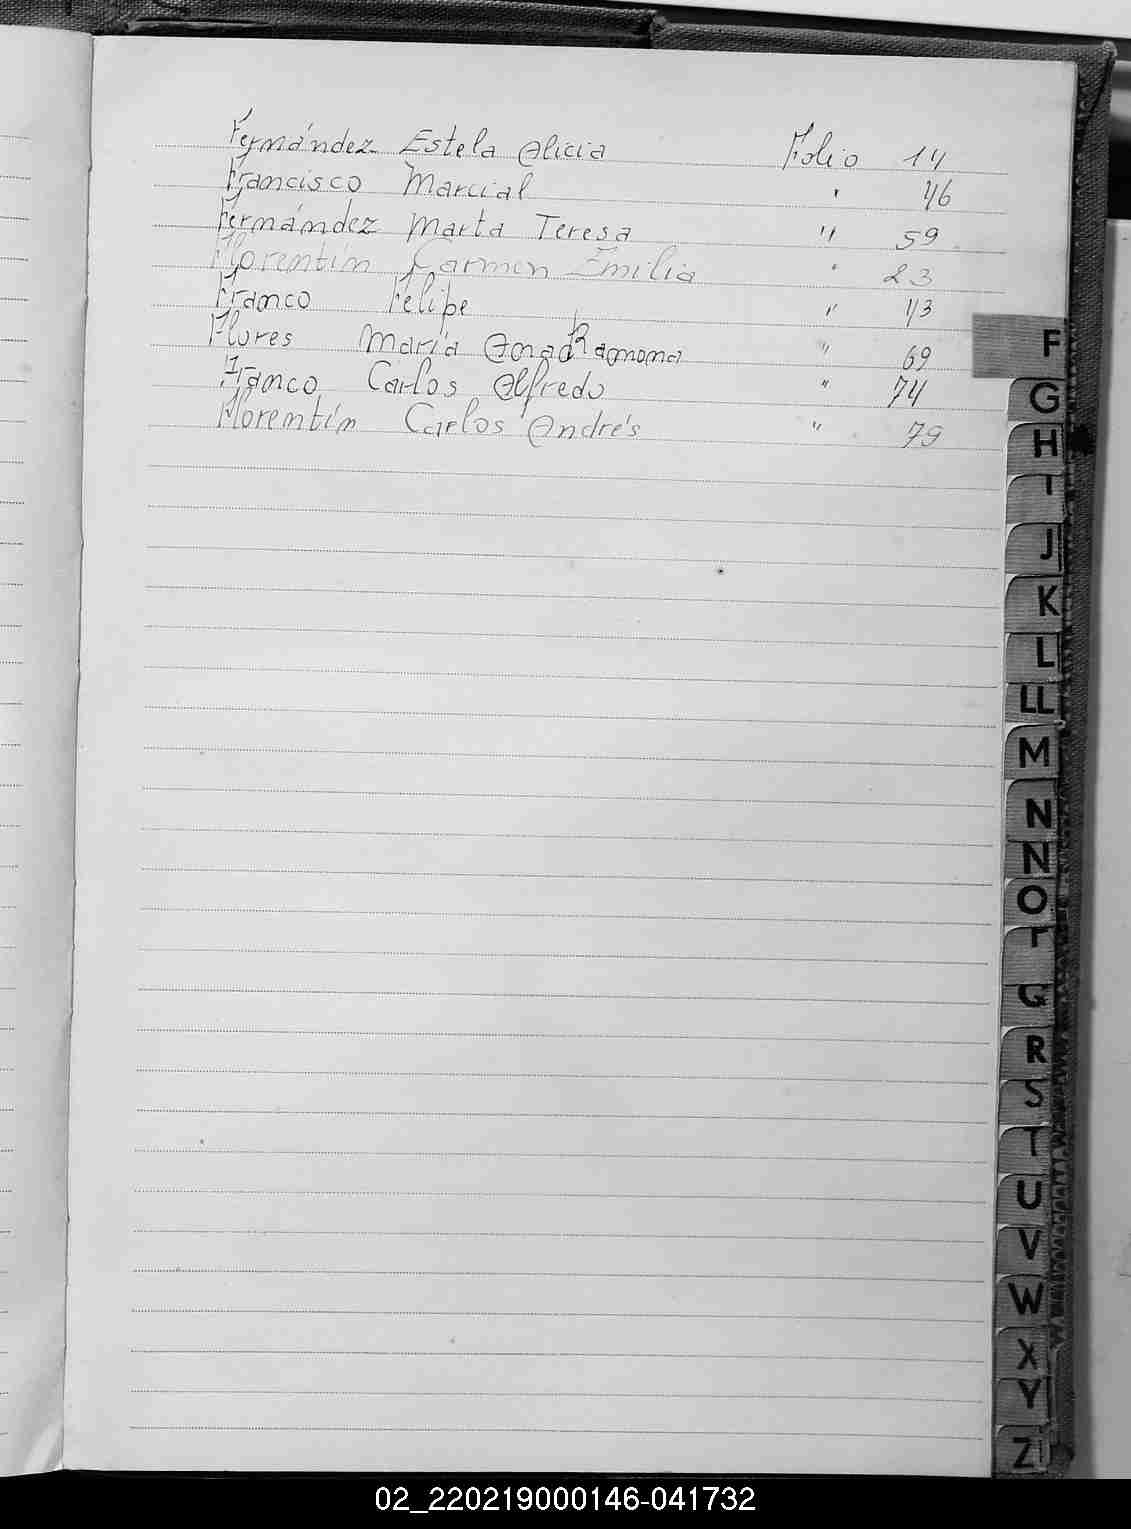 Fernández Estela Alicia Folio 14
Francisco Marcial " 46
Fernández Marta Teresa " 59
Florentín Carmen Emilia " 23
Franco Felipe " 13
Flores María Ramona " 69
Franco Carlos Alfredo " 74
Florentín Carlos Andrés " 79
F
G
H
I
J
K
L
LL
M
N
N
O
Q
R
S
T
U
V
W
X
Y
Z
02_220219000146-041732